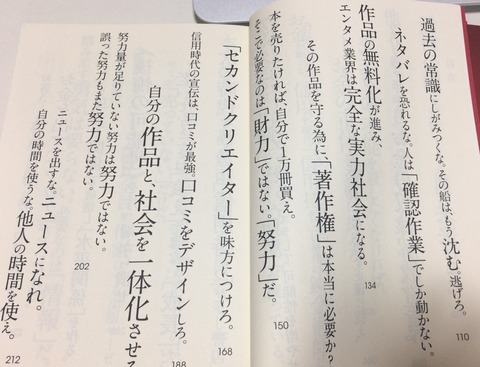 過去の常識にしがみつくな。その船は、もう沈む。逃げろ。
110
ネタバレを恐れるな。人は「確認作業」でしか動かない。
作品の無料化が進み、
エンタメ業界は完全な実力社会になる。
134
その作品を守る為に、「著作権」は本当に必要か?
本を売りたければ、自分で1万冊買え。
そこで必要なのは「財力」ではない。「努力」だ。
150
「セカンドクリエイター」を味方につけろ。
168
信用時代の宣伝は、口コミが最強。口コミをデザインしろ。
188
自分の作品と、社会を一体化させる
努力量が足りていない努力は努力ではない。
誤った努力もまた努力ではない。
202
ニュースを出すな。ニュースになれ。
自分の時間を使うな。他人の時間を使え。
212